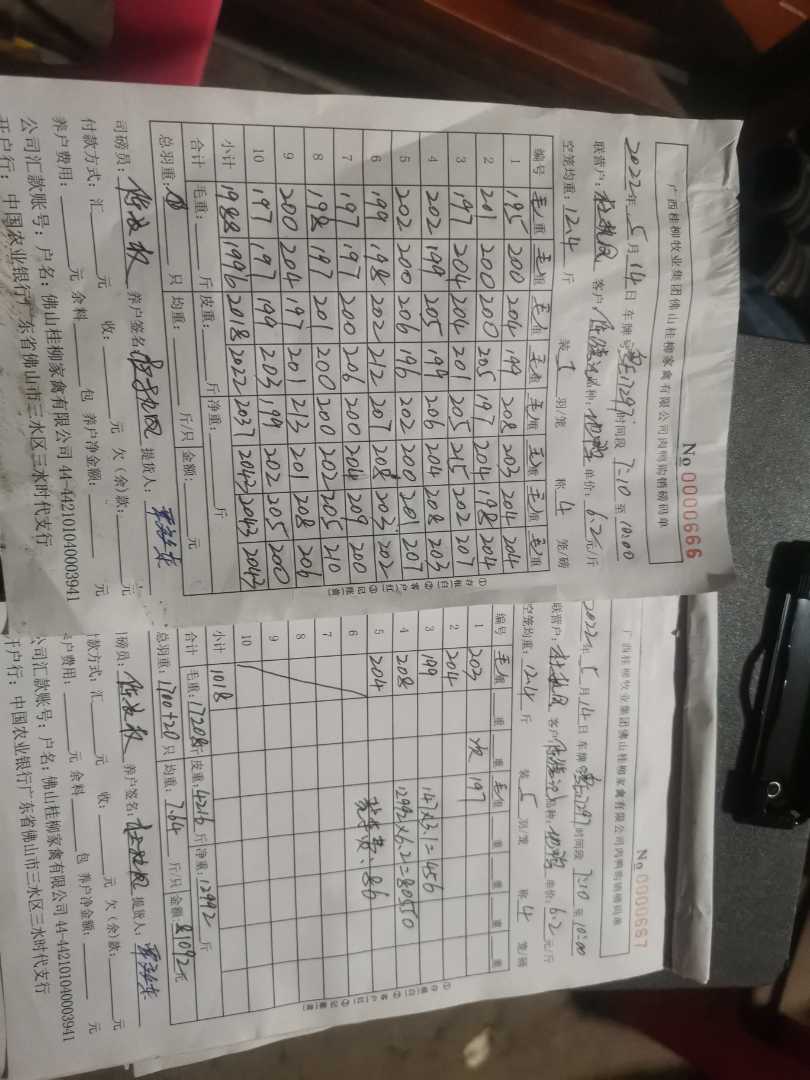 No 0000666
广西桂柳牧业集团佛山桂柳家禽有限公司肉鸭购销磅码单
2022年 5 月 14 日 车牌号 时间段 7:10 至 10:00
联营户: 客户: 品种: 单价: 6.2 元/斤
空笼均重: 12.4 斤 装 5 羽/笼 称 4 笼/磅
编号 毛重 毛重 毛重 毛重 毛重 毛重 毛重 毛重
1 195 200 204 199 208 203 204 204
2 201 200 200 205 197 204 198 204
3 197 204 204 201 205 215 202 207
4 202 199 205 199 206 204 208 203
5 202 200 206 196 202 200 201 207
6 199 198 202 212 207 208 203 202
7 197 197 200 206 200 204 209 200
8 198 197 201 200 200 202 205 210
9 200 204 197 201 213 201 208 206
10 197 197 199 203 199 202 205 200
小计 1988 1996 2018 2022 2037 2043 2043 2043
合计 毛重: 斤 皮重: 斤 净重: 斤
总羽重: 只 均重: 斤/只 金额: 元
①存根(白) ②客户(红) ③记账(黄)
司磅员: 养户签名: 提货人:
付款方式: 汇 元 收: 元 欠(余)款: 元
养户费用: 元 余料 包 养户净金额: 元
公司汇款账号: 户名: 佛山桂柳家禽有限公司 44-442101040003941
开户行: 中国农业银行广东省佛山市三水区三水时代支行
No 0000667
广西桂柳牧业集团佛山桂柳家禽有限公司肉鸭购销磅码单
2022年 5 月 14 日 车牌号 时间段 7:10 至 10:00
联营户: 客户: 品种: 单价: 6.2 元/斤
空笼均重: 12.4 斤 装 5 羽/笼 称 4 笼/磅
编号 毛重 重 重 毛重 重 重 重 重
1 203 次 197
2 204
3 199 147×3.1=456
4 208 12992×6.2=80550
5 204 费: 86
6
7
8
9
10
小计 1018
合计 毛重: 17208 斤 皮重: 4216 斤 净重: 12992 斤
总羽重: 1700+20 只 均重: 7.64 斤/只 金额: 81092 元
①存根(白) ②客户(红) ③记账(黄)
司磅员: 养户签名: 提货人:
付款方式: 汇 元 收: 元 欠(余)款: 元
养户费用: 元 余料 包 养户净金额: 元
公司汇款账号: 户名: 佛山桂柳家禽有限公司 44-442101040003941
开户行: 中国农业银行广东省佛山市三水区三水时代支行